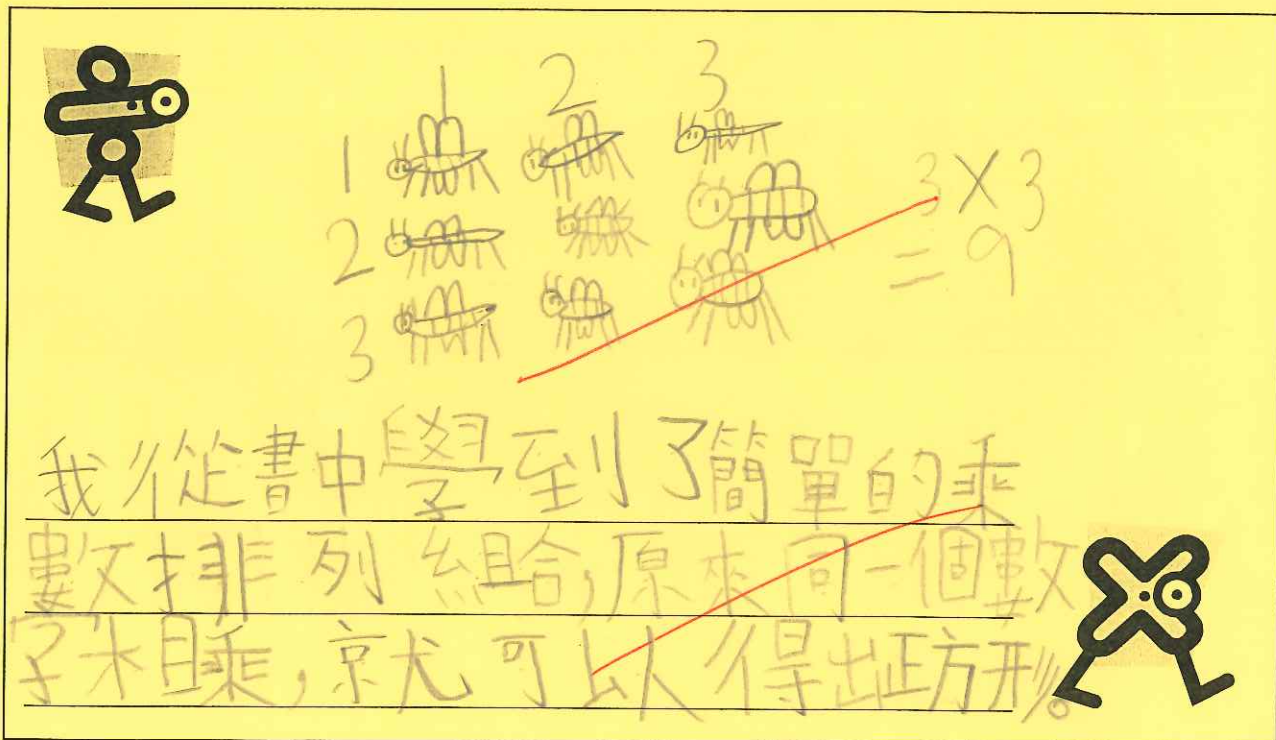 1 2 3
1
2
3
3×3
=9
我從書中學到了簡單的乘
數排列組合,原來同一個數
字相乘,就可以得出正方形。